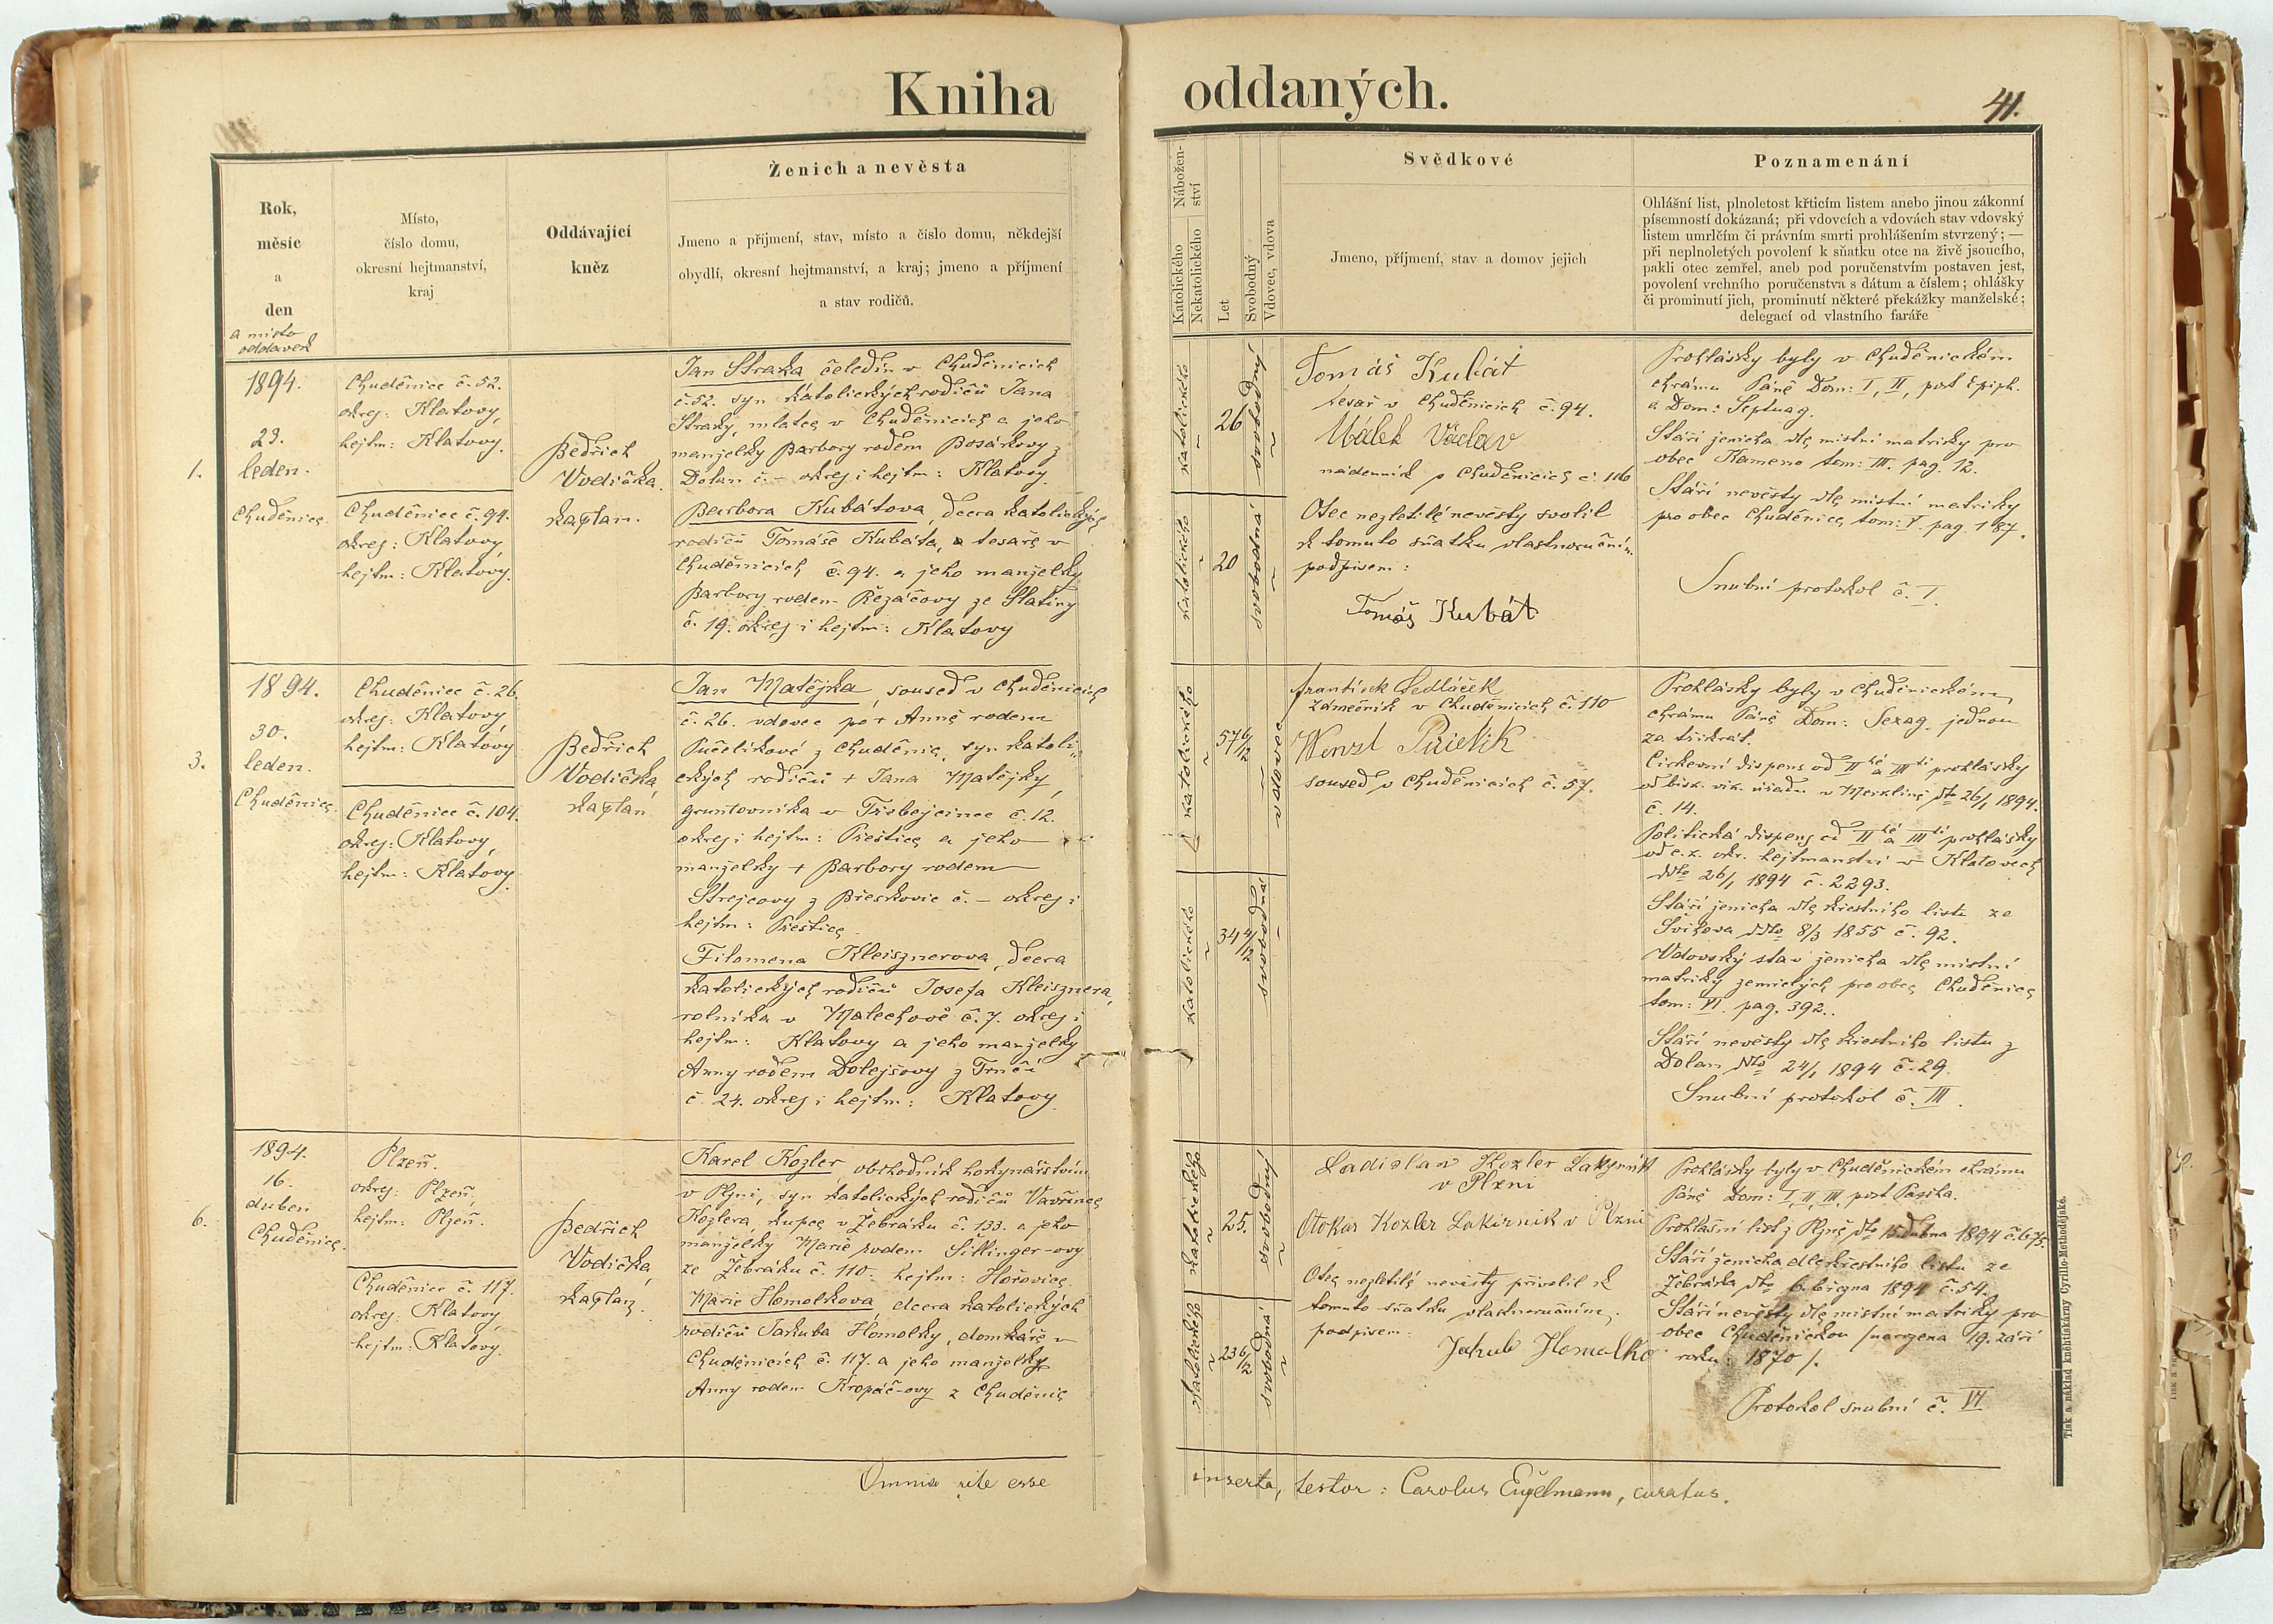 Kniha oddaných.
41.
Rok,
měsíc
a
den
a místo
oddavek
Místo,
číslo domu,
okresní hejtmanství,
kraj
Oddávající
kněz
Ženich a nevěsta
Jmeno a příjmení, stav, místo a číslo domu, někdejší
obydlí, okresní hejtmanství, a kraj; jmeno a příjmení
a stav rodičů.
Nábožen-
ství
Katolického
Nekatolického
Let
Svobodný
Vdovec, vdova
Svědkové
Jmeno, příjmení, stav a domov jejich
Poznamenání
Ohlášní list, plnoletost křticím listem anebo jinou zákonní
písemností dokázaná; při vdovcích a vdovách stav vdovský
listem umrlčím či právním smrti prohlášením stvrzený; —
při neplnoletých povolení k sňatku otce na živě jsoucího,
pakli otec zemřel, aneb pod poručenstvím postaven jest,
povolení vrchního poručenstva s dátum a číslem; ohlášky
či prominutí jich, prominutí některé překážky manželské;
delegací od vlastního faráře
1.
1894.
23.
leden.
Chuděnice.
Chuděnice č. 52.
okrej: Klatovy,
hejtm: Klatovy.
Chuděnice č. 94.
okrej: Klatovy,
hejtm: Klatovy.
Bedřich
Vodička.
kaplan.
Jan Straka čeledín v Chuděnicích
č. 52. syn katolických rodičů Jana
Straky, mlatce v Chuděnicích a jeho
manželky Barbory rodem Bosákovy z
Dolan č. – okrej i hejtm: Klatovy.
Barbora Kubátova, dcera katolických
rodičů Tomáše Kubáta, tesaře v
Chuděnicích č. 94. a jeho manželky
Barbory rodem Řezáčovy ze Slatiny
č. 19. okrej i hejtm: Klatovy
katolického
26
svobodný
katolického
20
svobodná
Tomáš Kubát
tesař v Chuděnicích č. 94.
Málek Václav
nádenník v Chuděnicích č. 116
Otec nezletilé nevěsty svolil
k tomuto sňatku vlastnoručním
podpisem:
Tomáš Kubát
Prohlášky byly v Chuděnickém
chrámu Páně Dom: I, II, post Epiph.
a Dom: Septuag.
Stáří ženicha dle místní matriky pro
obec Kameno tom: III. pag. 12.
Stáří nevěsty dle místní matriky
pro obec Chuděnice, tom: V. pag. 187.
Snubní protokol č. I.
3.
1894.
30.
leden.
Chuděnice.
Chuděnice č. 26.
okrej: Klatovy,
hejtm: Klatovy
Chuděnice č. 104.
okrej: Klatovy,
hejtm: Klatovy.
Bedřich
Vodička,
kaplan
Jan Matějka, soused v Chuděnicích
č. 26. vdovec po + Anně rodem
Pučelíkové z Chuděnic, syn katoli-
ckých rodičů + Jana Matějky,
gruntovníka v Třebejcince č. 12.
okrej i hejtm: Přeštice a jeho
manželky + Barbory rodem
Strejcovy z Břeskovic č. – okrej i
hejtm: Přeštice.
Filomena Kleisznerova, dcera
katolických rodičů Josefa Kleisznera,
rolníka v Malechově č. 7. okrej i
hejtm: Klatovy a jeho manželky
Anny rodem Dolejšovy z Trnčí
č. 24. okrej i hejtm: Klatovy.
katolického
57 6/12
vdovec
katolického
34 4/12
svobodná
František Sedláček
zámečník v Chuděnicích č. 110
Wenzl
soused v Chuděnicích č. 57.
Prohlášky byly v Chuděnickém
chrámu Páně Dom: Sexag. jednou
za třikrát.
Církevní dispens od II hé a III tí prohlášky
od bisk. vik. úřadu v Merklíně dto 26/1 1894.
č. 14.
Politická dispens od II hé a III tí prohlášky
od c. k. okr. hejtmanství v Klatovech
ddto 26/1 1894 č. 2293.
Stáří ženicha dle křestního listu ze
Švihova ddto 8/3 1855 č. 92.
Vdovský stav ženicha dle místní
matriky zemřelých pro obec Chuděnice
tom: VI. pag. 392.
Stáří nevěsty dle křestního listu z
Dolan ddto 24/1 1894 č. 29.
Snubní protokol č. III.
6.
1894.
16.
duben
Chuděnice.
Plzeň.
okrej: Plzeň,
hejtm: Plzeň.
Chuděnice č. 117.
okrej: Klatovy,
hejtm: Klatovy.
Bedřich
Vodička,
kaplan.
Karel Kozler, obchodník hokynářstvím
v Plzni, syn katolických rodičů Vavřince
Kozlera, kupce v Žebráku č. 133. a jeho
manželky Marie rodem Šillinger-ovy
ze Žebráku č. 110. hejtm: Hořovice.
Marie Homolkova dcera katolických
rodičů Jakuba Homolky, domkáře v
Chuděnicích č. 117. a jeho manželky
Anny rodem Kropáč-ovy z Chuděnic
katolického
25.
svobodný
katolického
23 6/12
svobodná
Ladislav Kozler Lakýrník
v Plzni
Otokar Kozler Lakírník v Plzni
Otec nezletilé nevěsty přivolil k
tomuto sňatku vlastnoručním
podpisem:
Jakub Homolka
Prohlášky byly v Chuděnickém chrámu
Páně Dom: I, II, III, post Pascha.
Prohlašní list z Plzně dto 15. dubna 1894 č. 675.
Stáří ženicha dle křestního listu ze
Žebráka dto 6. března 1894 č. 54.
Stáří nevěsty dle místní matriky pro
obec Chuděnickou /narozena 19. září
roku: 1870/.
Protokol snubní č. VI
Omnia rite esse inserta, testor: Carolus Engelmann, curatus.
Tisk a náklad knihtiskárny Cyrillo-Methodějské.